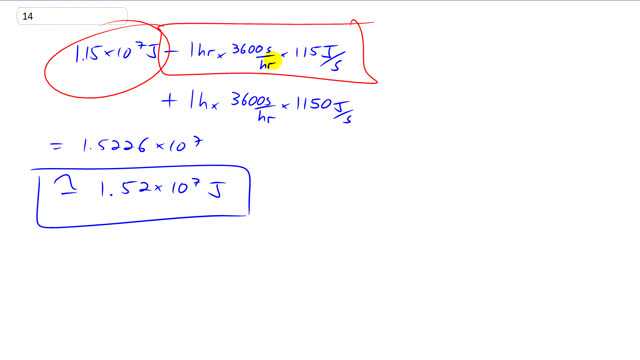 14
1.15 × 10⁷ J − 1hr × 3600 s/hr × 115 J/s
+ 1h × 3600 s/hr × 1150 J/s
= 1.5226 × 10⁷
≃ 1.52 × 10⁷ J